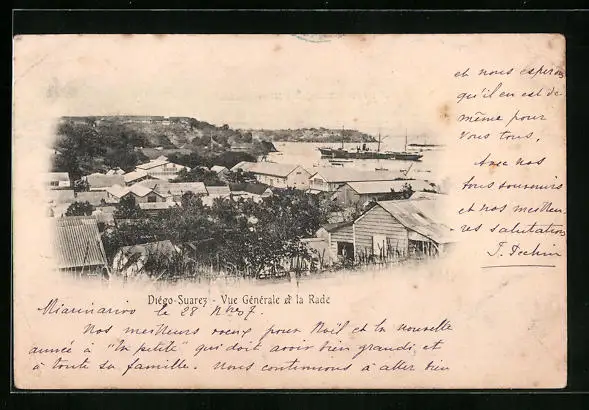 Diégo-Suarez - Vue Générale et la Rade
Miarinarivo le 28 Nbre 07.
Nos meilleurs voeux pour Noël et la nouvelle
année à "la petite" qui doit avoir bien grandi, et
à toute sa famille. Nous continuons à aller bien
et nous espérons
qu'il en est de
même pour
vous tous.
Avec nos
bons souvenirs
et nos meilleu-
res salutations